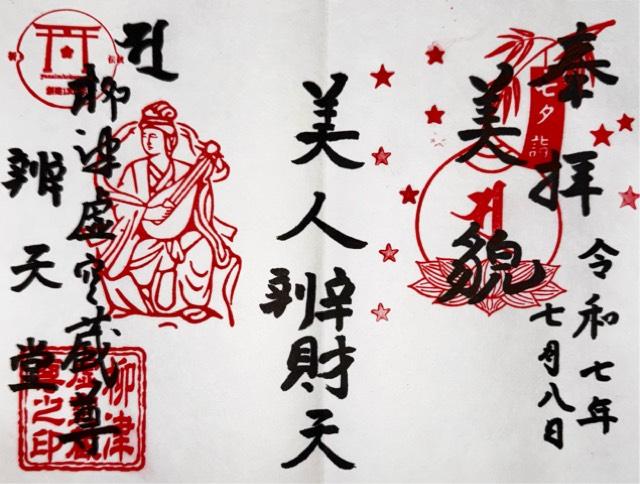 奉拝
令和七年
七月八日
七夕詣
美貌
美人辨財天
柳津虚空蔵尊
辨天堂
柳津
虚空蔵
尊之印